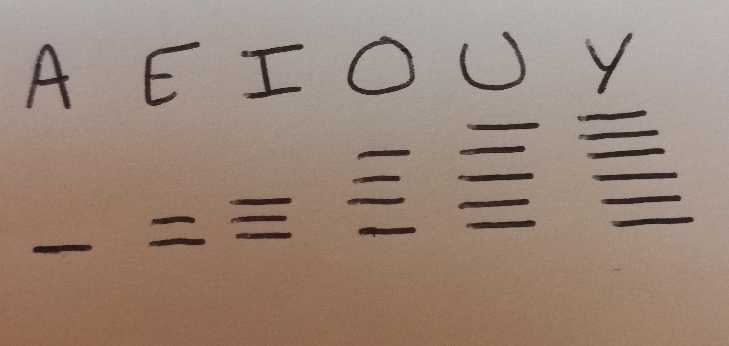 A E I O U Y